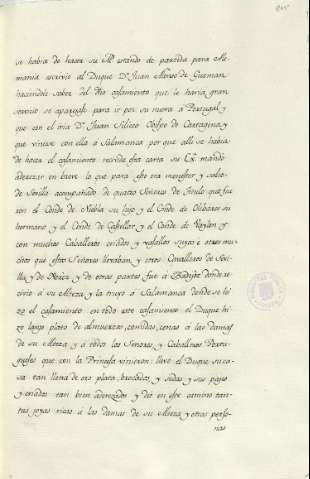 se habia de hacer su M. estando de partida para Ale-
mania escrivió al Duque Dn. Juan Alonso de Guzman
haciendole saber del dho casamiento que le haria gran
servicio se aparejase para ir por su nuera a Portugal, y
que con el iria Dn. Juan Siliceo Obispo de Cartagena, y
que viniese con ella a Salamanca por que alli se habia
de hacer el casamiento recivida esta carta su Ex. mandó
aderezar en breve lo que para esto era menester y salió
de Sevilla acompañado de quatro Señores de titulo que fue
ron el Conde de Niebla su hijo y el Conde de Olibares su
hermano y el Conde de y el Conde de Baylen y
con muchos Caballeros criados y vasallos suyos e otros mu-
chos que estos Señores llevaban, y otros Cavalleros de Sevi-
lla y de Xerez y de otras partes fue á Badajoz donde re-
civio á su Alteza y la truxo á Salamanca donde se hi-
zo el casamiento en todo este casamiento el Duque hi-
zo largo plato de almuerzos, comidas, cenas á las damas
de su Alteza y á todos los Señores, y Caballeros Portu-
gueses que con la Princesa vinieron: llevó el Duque su ca-
sa tan llena de oro plata, brocados, y sedas y sus pages
y criados tan bien aderezados y dió en este camino tan-
tas joyas ricas á las damas de su Alteza y otras perso-
nas